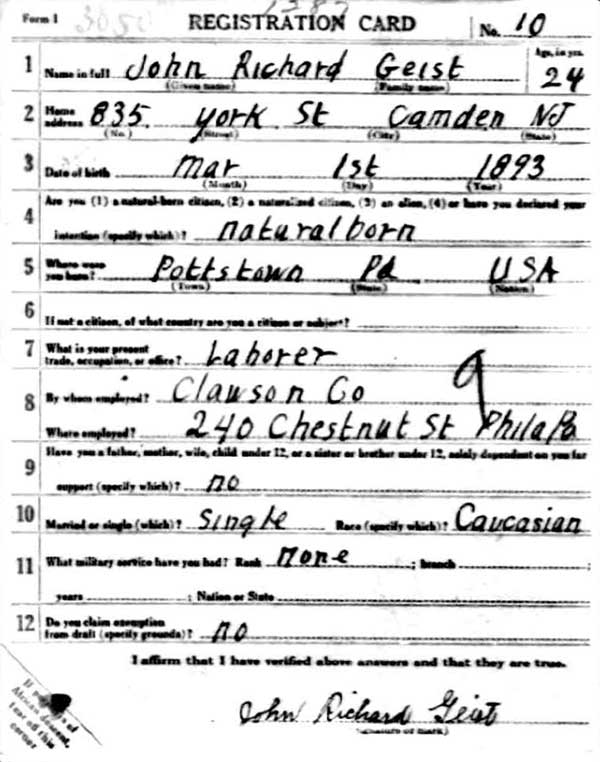 Form 1 REGISTRATION CARD No. 10
1 Name in full John Richard Geist Age, in yrs. 24
(Given name) (Family name)
2 Home address 835 York St Camden NJ
(No.) (Street) (City) (State)
3 Date of birth Mar 1st 1893
(Month) (Day) (Year)
4 Are you (1) a natural-born citizen, (2) a naturalized citizen, (3) an alien, (4) or have you declared your
intention (specify which)? natural born
5 Where were you born? Pottstown Pa USA
(Town) (State) (Nation)
6 If not a citizen, of what country are you a citizen or subject?
7 What is your present trade, occupation, or office? Laborer 9
8 By whom employed? Clawson Co
Where employed? 240 Chestnut St Phila Pa
9 Have you a father, mother, wife, child under 12, or a sister or brother under 12, solely dependent on you for
support (specify which)? no
10 Married or single (which)? Single Race (specify which)? Caucasian
11 What military service have you had? Rank none ; branch ;
years ; Nation or State
12 Do you claim exemption from draft (specify grounds)? no
I affirm that I have verified above answers and that they are true.
John Richard Geist
(Signature or mark)
If person is of
African descent,
tear off this
corner